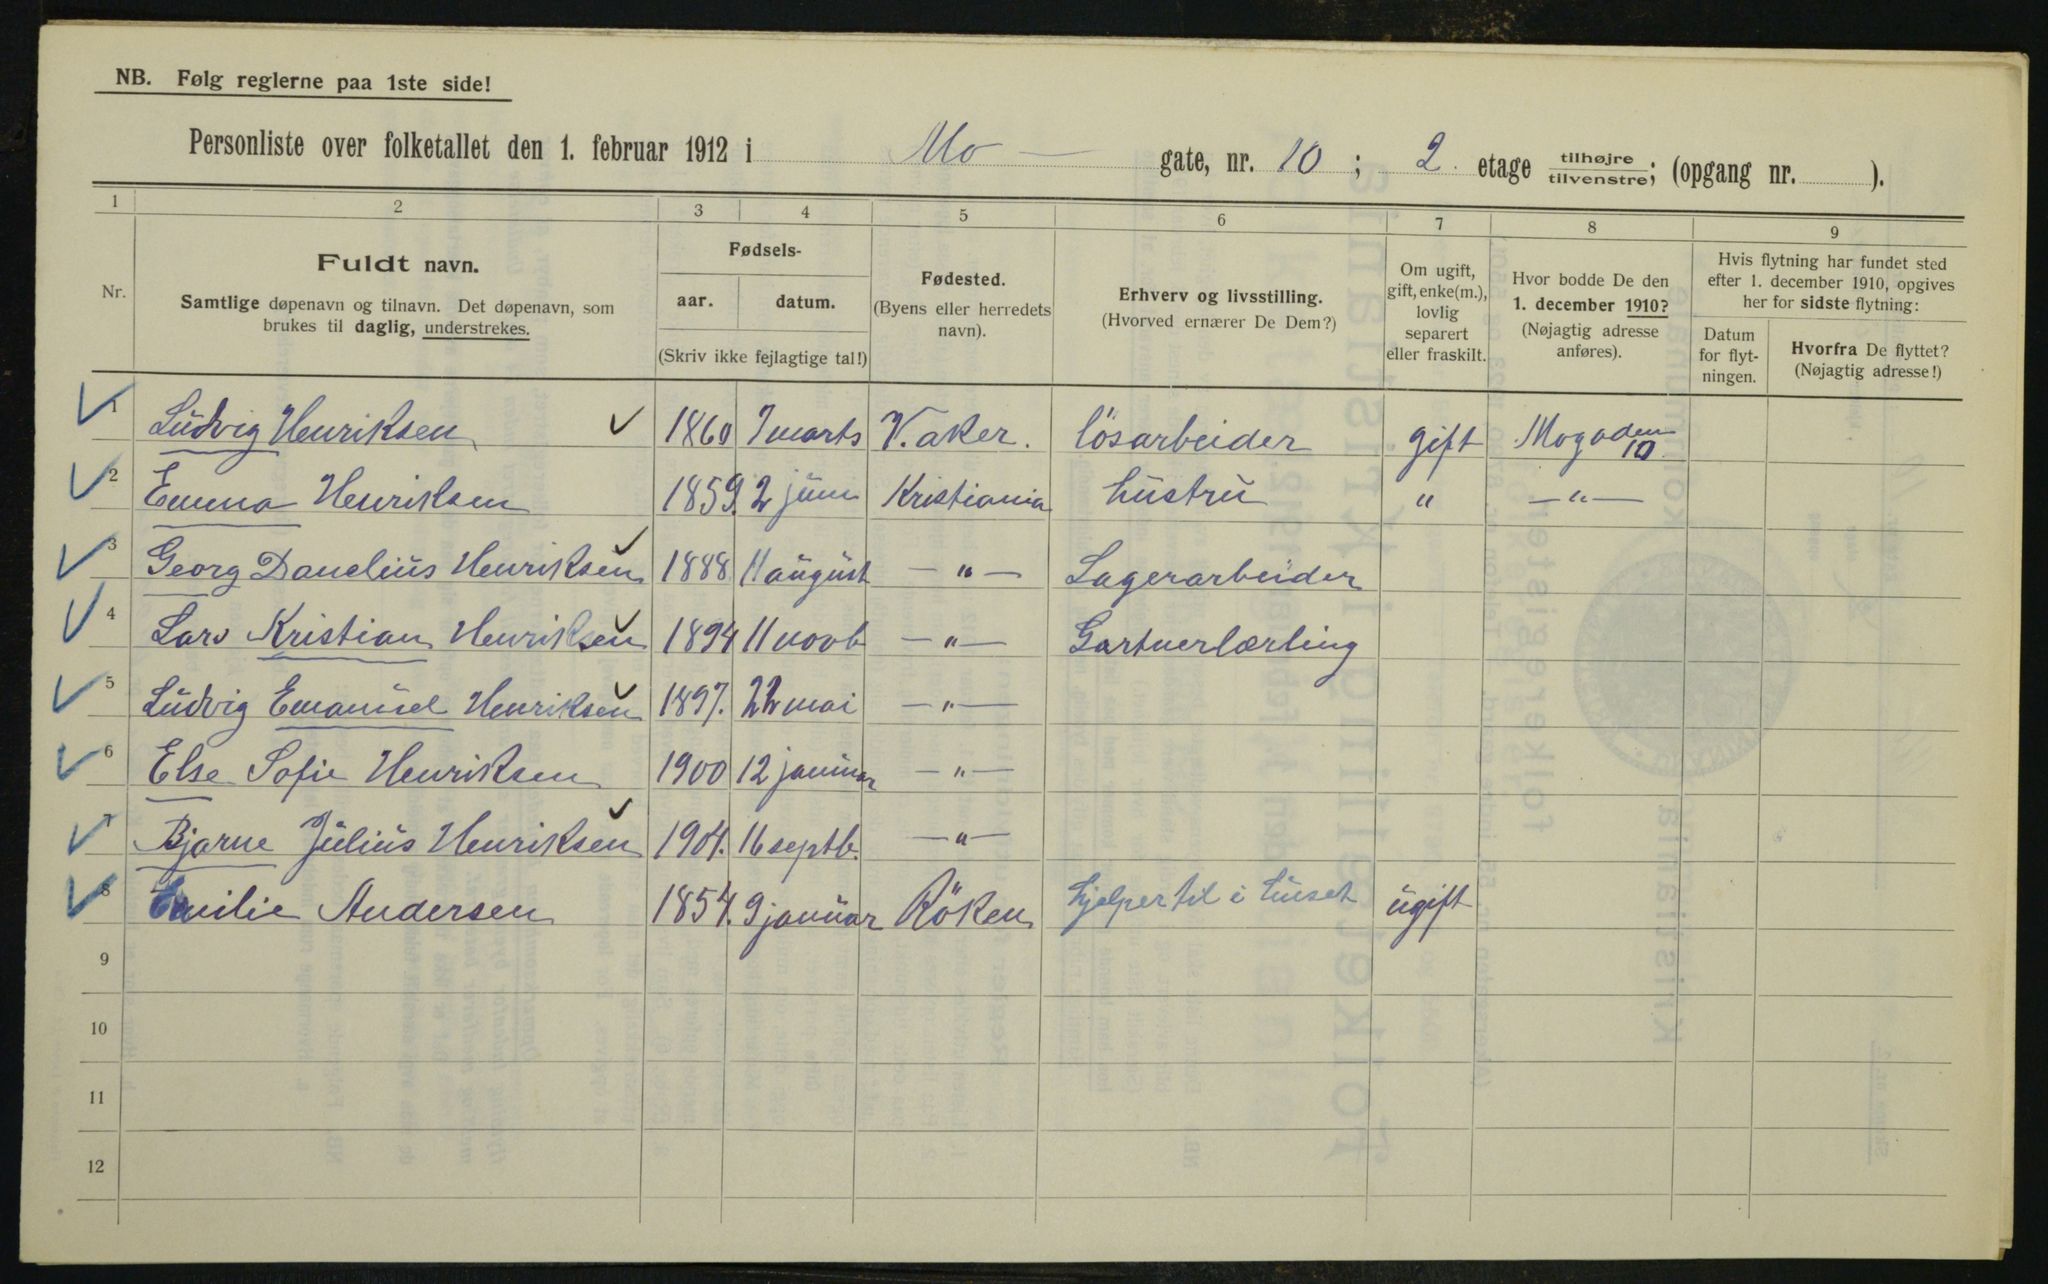 NB. Følg reglerne paa 1ste side!
Personliste over folketallet den 1. februar 1912 i Mo — gate, nr. 10 ; 2. etage tilhøjre/tilvenstre; (opgang nr. ).
1 2 3 4 5 6 7 8 9
Nr.
Fuldt navn.
Samtlige døpenavn og tilnavn. Det døpenavn, som
brukes til daglig, understrekes.
Fødsels-
aar. datum.
(Skriv ikke fejlagtige tal!)
Fødested.
(Byens eller herredets
navn).
Erhverv og livsstilling.
(Hvorved ernærer De Dem?)
Om ugift,
gift, enke(m.),
lovlig
separert
eller fraskilt.
Hvor bodde De den
1. december 1910?
(Nøjagtig adresse
anføres).
Hvis flytning har fundet sted
efter 1. december 1910, opgives
her for sidste flytning:
Datum
for flyt-
ningen.
Hvorfra De flyttet?
(Nøjagtig adresse!)
1 Ludvig Henriksen 1860 7 marts V. aker. lösarbeider gift Mogaden 10
2 Emma Henriksen 1859. 2 juni Kristiania hustru " — " —
3 Georg Danelius Henriksen 1888 11 august — " — Lagerarbeider
4 Lars Kristian Henriksen 1894 11 novb — " — Gartnerlærling
5 Ludvig Emanuel Henriksen 1897. 22 mai — " —
6 Else Sofie Henriksen 1900 12 januar — " —
7 Bjarne Julius Henriksen 1904. 16 septb. — " —
8 Emilie Andersen 1854. 9 januar Röken hjelper til i huset ugift
9
10
11
12